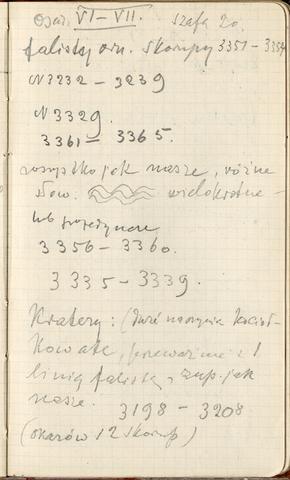 Osad. VI–VII. Szafa 20.
falisty orn. Skorupy 3351–3354
N 3232 – 3239
N 3329.
3361 – 3365.
wszystko jak nasze, różne
słow. wielokrotne –
lub pojedyncze
3356 – 3360.
3335 – 3339.
Kratery: (duże naczynia kocioł-
kowate, przeważnie z 1
linią falistą, zup. jak
nasze. 3198 – 3208
(okazów 12 skorup)